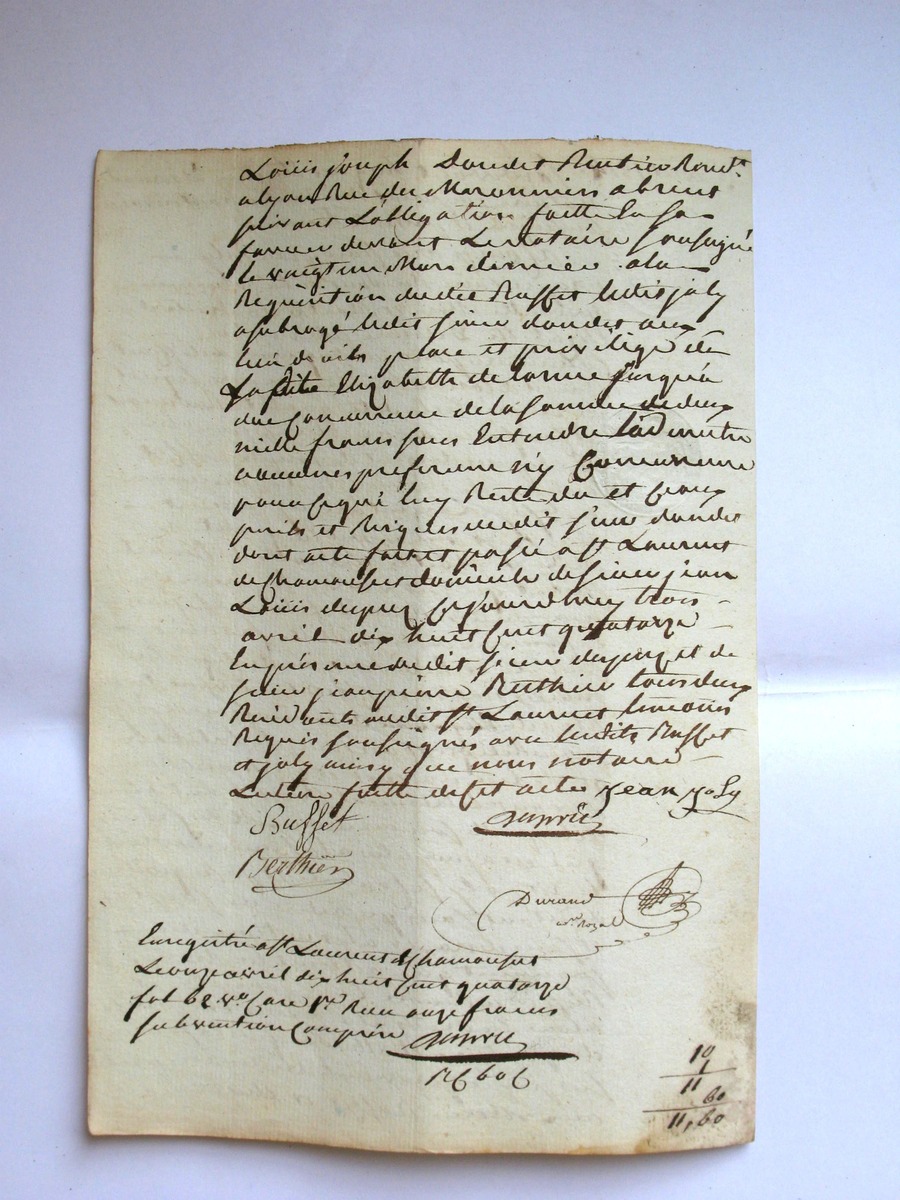 Louis joseph Dandet Rentier
a lyon Rue des Maronniers
suivant L'obligation faitte En sa
faveur devant Le notaire soussigné
le vingt un Mars dernier a la
Requisition dudit Buffet ledit joly
a subrogé ledit sieur dandet aux
droits place et privilege de
Ladite Elizabeth jusqu'a
due Concurrence de la somme de deux
mille francs sans Entendre
aucunes preference n'y Concurrence
pour ce qui luy Reste du et aux
perils et Risques dudit sieur dandet
dont acte fait et passé a st Laurent
de Chamousset domicile de sieur jean
Louis dupuy Cejourdhuy trois
avril dix huit Cent quatorze
En présence dudit sieur dupuy et de
sieur jean pierre Berthier tous deux
Residents audit st Laurent temoins
Requis soussignés avec lesdits Buffet
et joly ainsy que nous notaire
Lecture faitte desdit actes jean joly
Buffet
Berthier
Durand
no.re Royal
Enregistré a st Laurent de Chamousset
Le onze avril dix huit Cent quatorze
fol 62 vo Case 1re Reçu onze francs
subvention Comprise
10
1
11
60
11,60